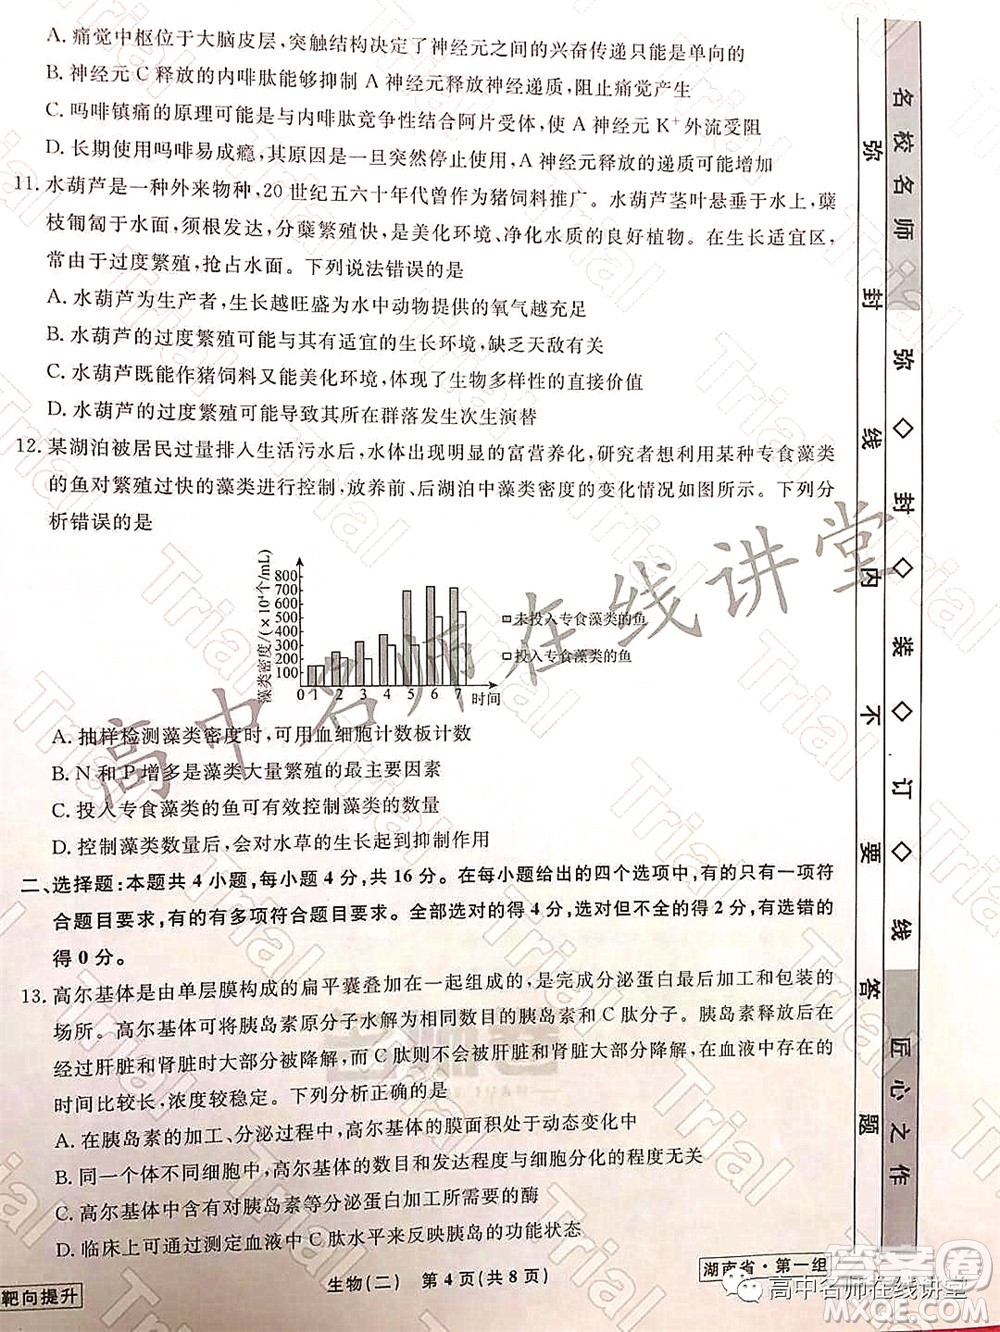 A. 痛觉中枢位于大脑皮层，突触结构决定了神经元之间的兴奋传递只能是单向的
B. 神经元 C 释放的内啡肽能够抑制 A 神经元释放神经递质，阻止痛觉产生
C. 吗啡镇痛的原理可能是与内啡肽竞争性结合阿片受体，使 A 神经元 K⁺外流受阻
D. 长期使用吗啡易成瘾，其原因是一旦突然停止使用，A 神经元释放的递质可能增加
11. 水葫芦是一种外来物种，20 世纪五六十年代曾作为猪饲料推广。水葫芦茎叶悬垂于水上，蘖
枝匍匐于水面，须根发达，分蘖繁殖快，是美化环境、净化水质的良好植物。在生长适宜区，
常由于过度繁殖，抢占水面。下列说法错误的是
A. 水葫芦为生产者，生长越旺盛为水中动物提供的氧气越充足
B. 水葫芦的过度繁殖可能与有适宜的生长环境，缺乏天敌有关
C. 水葫芦既能作猪饲料又能美化环境，体现了生物多样性的直接价值
D. 水葫芦的过度繁殖可能导致其所在群落发生次生演替
12. 某湖泊被居民过量排入生活污水后，水体出现明显的富营养化，研究者想利用某种专食藻类
的鱼对繁殖过快的藻类进行控制，放养前、后湖泊中藻类密度的变化情况如图所示。下列分
析错误的是
藻类密度/(×10⁴个/mL)
800
700
600
500
400
300
200
100
0 1 2 3 4 5 6 7 时间
未投入专食藻类的鱼
投入专食藻类的鱼
A. 抽样检测藻类密度时，可用血细胞计数板计数
B. N 和 P 增多是藻类大量繁殖的最主要因素
C. 投入专食藻类的鱼可有效控制藻类的数量
D. 控制藻类数量后，会对水草的生长起到抑制作用
二、选择题：本题共 4 小题，每小题 4 分，共 16 分。在每小题给出的四个选项中，有的只有一项符
合题目要求，有的有多项符合题目要求。全部选对的得 4 分，选对但不全的得 2 分，有选错的
得 0 分。
13. 高尔基体是由单层膜构成的扁平囊叠加在一起组成的，是完成分泌蛋白最后加工和包装的
场所。高尔基体可将胰岛素原分子水解为相同数目的胰岛素和 C 肽分子。胰岛素在血液流
经肝脏和肾脏时大部分被降解，而 C 肽则不会被肝脏和肾脏大部分降解，在血液中存在的
时间比较长，浓度较稳定。下列分析正确的是
A. 在胰岛素的加工、分泌过程中，高尔基体的膜面积处于动态变化中
B. 同一个体不同细胞中，高尔基体的数目和发达程度与细胞分化的程度有关
C. 高尔基体中含有对胰岛素等分泌蛋白加工所需要的酶
D. 临床上可通过测定血液中 C 肽水平来反映胰岛的功能状态
生物(二) 第 4 页(共 8 页)
湖南省·第一组
靶向提升
名校名师
弥◇封◇装◇订◇线
匠心之作
弥封线内不要答题
高中名师在线讲堂
高中名师在线讲堂
答案圈
MXQE.COM
Trial